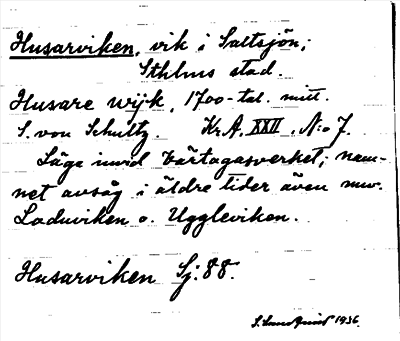 Husarviken, vik i Saltsjön;
Sthlms stad.
Husare wijk, 1700-tal. mitt.
S. von Schultz. Kr. A. XXII. N:o 7.
Läge invid Värtagasverket; nam-
net avsåg i äldre tider även nuv.
Laduviken o. Uggleviken.
Husarviken Sj: 88.
S. Landquist 1936.